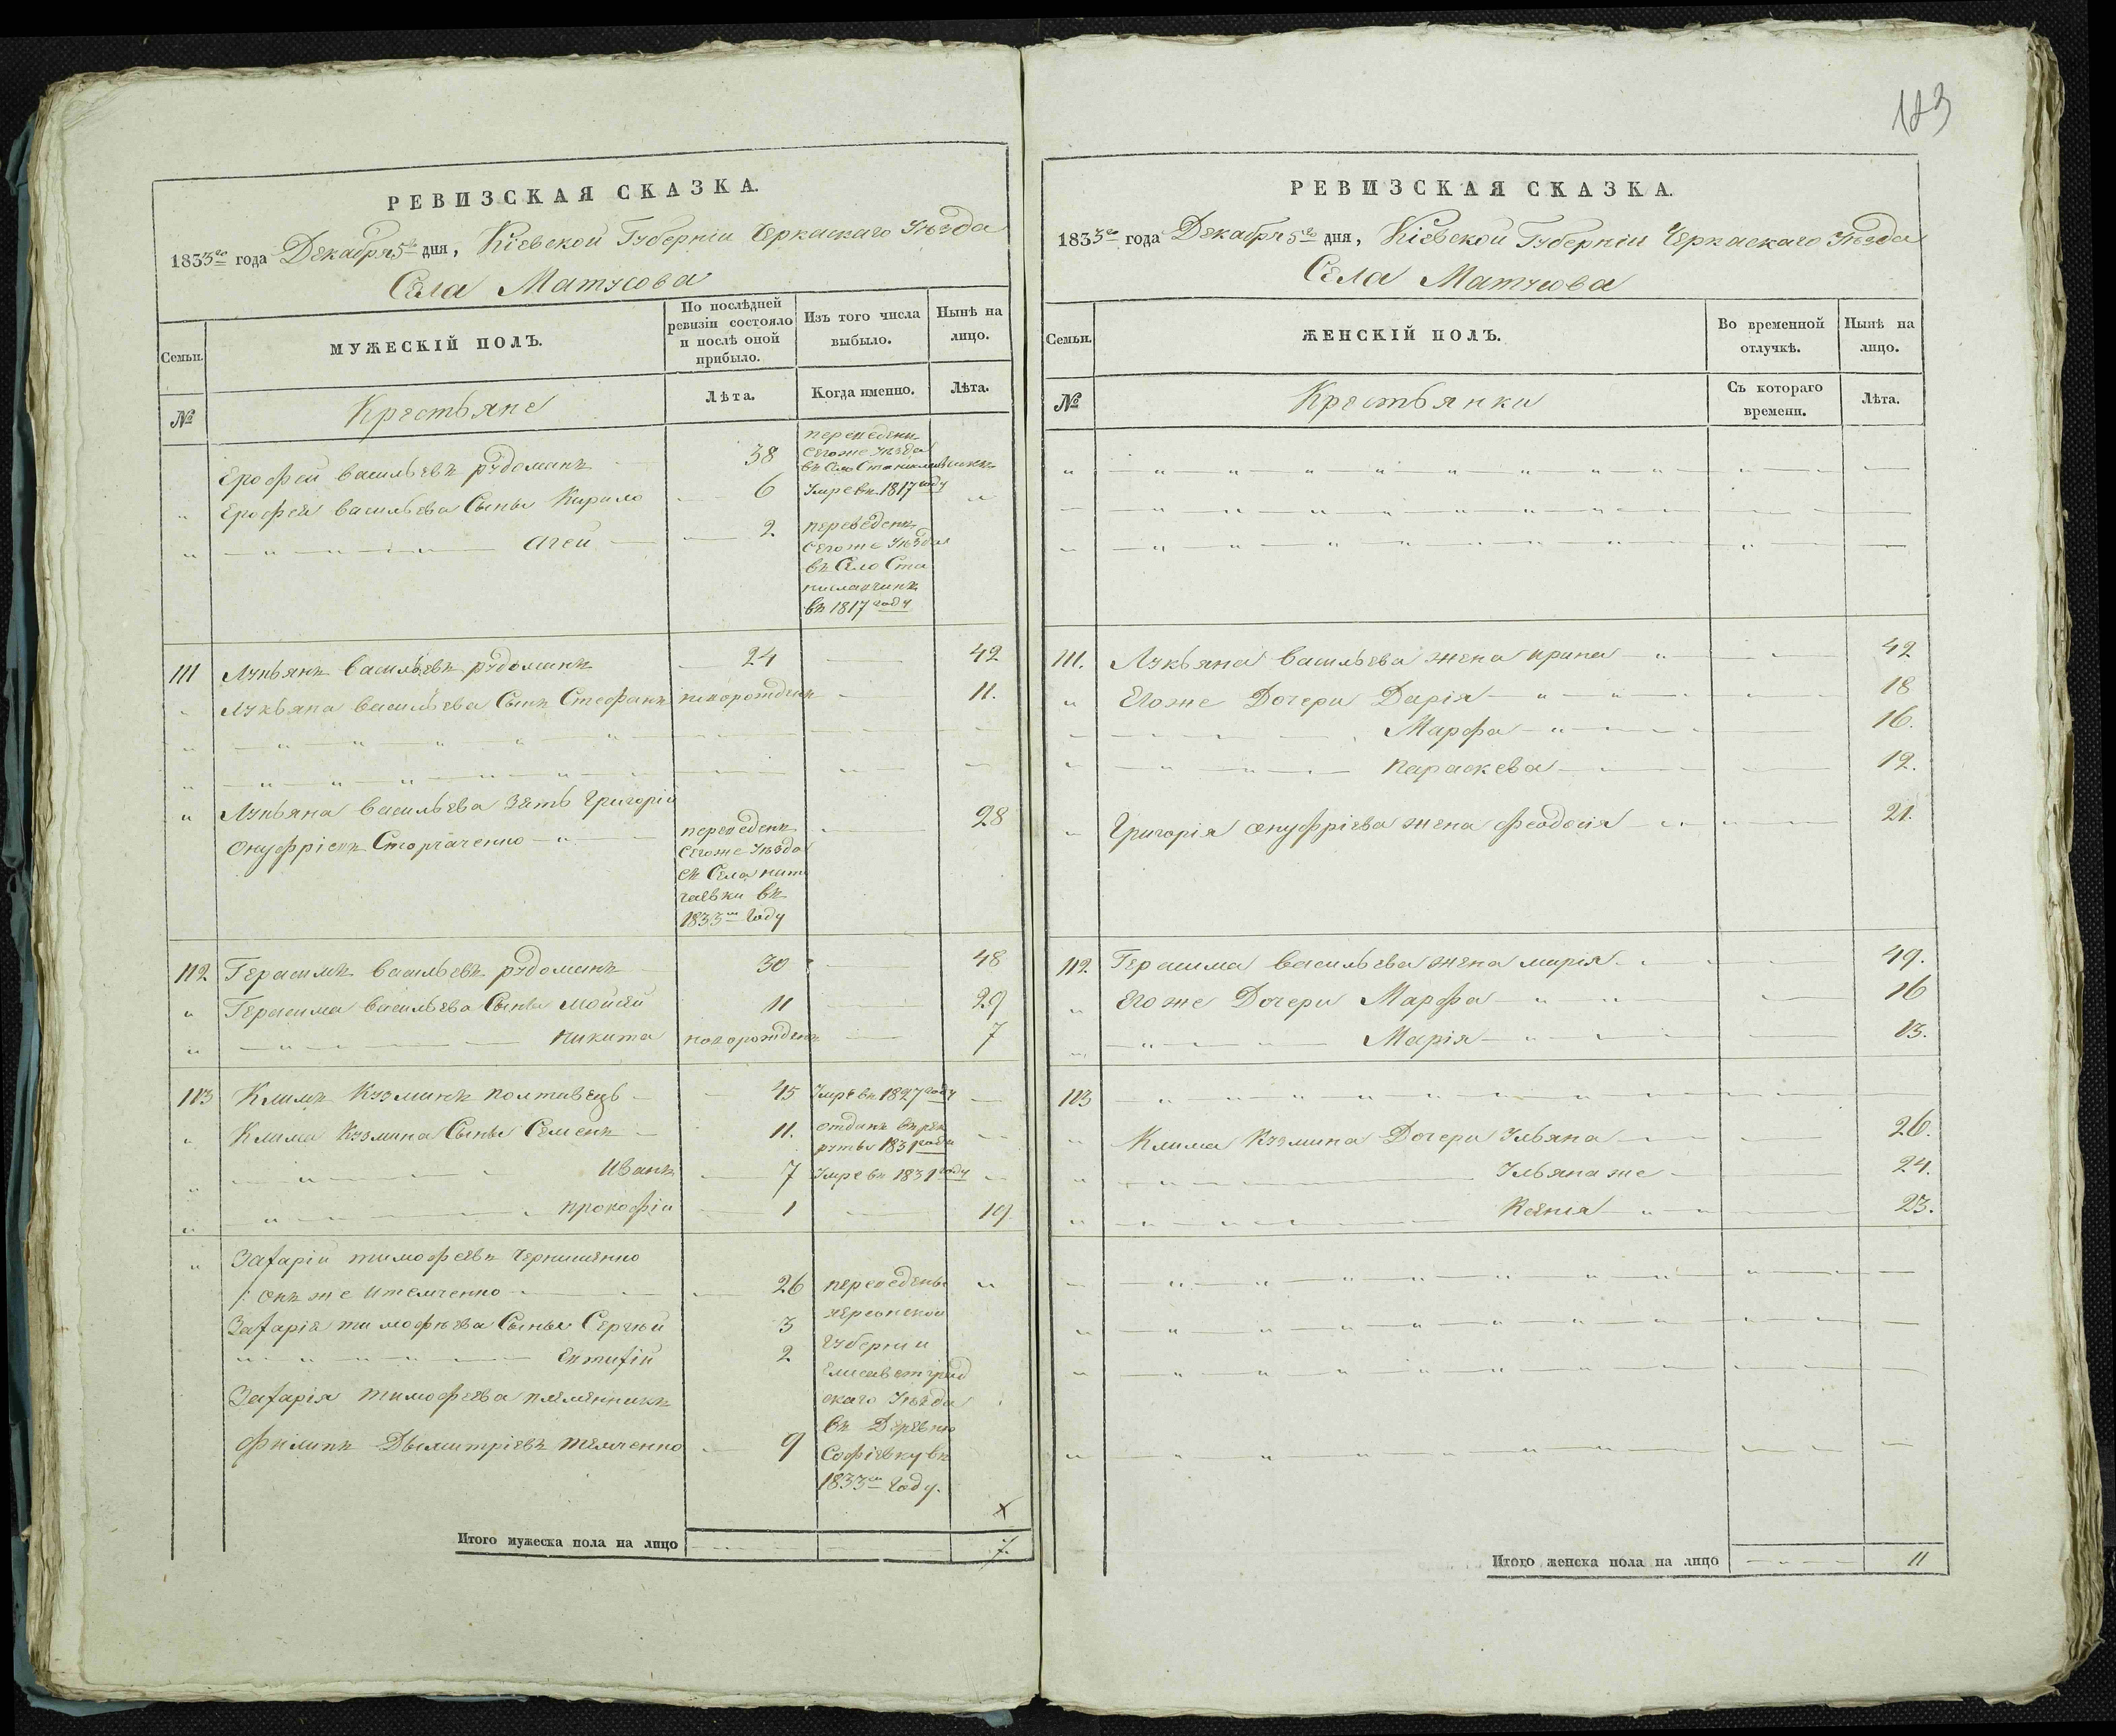 РЕВИЗСКАЯ СКАЗКА.
1833го года Декабря 5го дня, Кіевской Губерніи Черкаскаго Уѣзда
Села Матусова
Семьи.
МУЖЕСКІЙ ПОЛЪ.
По послѣдней ревизіи состояло и послѣ оной прибыло.
Изъ того числа выбыло.
Нынѣ на лицо.
№
Крестьяне
Лѣта.
Когда именно.
Лѣта.
Ерофей васильевъ рудоманъ 38 переведенъ
сегоже уѣзда
въ Село
" Ерофея васильева Сыны Кирило 6 Умре въ 1817 году "
" " Агей 2 переведенъ
сегоже Уѣзда
въ Село Ста
ниславчикъ
въ 1817 году
111 Лукьянъ васильевъ рудоманъ 24 42
" Лукьяна васильева Сынъ Стефанъ новорожденъ 11.
" Лукьяна васильева Зять Григорій
Онуфріевъ Сторчаченко 28
переведенъ
сегоже Уѣзда
съ Села
въ
1833м Году
112 Герасимъ васильевъ рудоманъ 30 48
" Герасима васильева Сыны Мойсей 11 29
" никита новорожденъ 7
113 Климъ Кузминъ полтавецъ 45 Умре въ 1827 году
" Клима Кузмина Сыны Семенъ 11. отданъ въ рек
руты 1831 году
" Иванъ 7 Умре въ 1831 году
" прокофій 1 19
" Захарій тимофеевъ
онъ же 26 переведены "
Захарія тимофѣева Сыны Сергѣй 3 херсонской
Губерніи
" Евтихій 2
Елисаветград
Захарія тимофеева племянникъ скаго Уѣзда
въ Деревню
филипъ Дымитріевъ темченко 9 Софіевку въ
1833м Году.
х
Итого мужеска пола на лицо 7.
183
РЕВИЗСКАЯ СКАЗКА.
1833го года Декабря 5го дня, Кіевской Губерніи Черкаскаго Уѣзда
Села Матусова
Семьи.
ЖЕНСКІЙ ПОЛЪ.
Во временной отлучкѣ.
Нынѣ на лицо.
№
Крестьянки
Съ котораго времени.
Лѣта.
111. Лукьяна васильева жена ирина 42
" Егоже Дочери Дарія 18
" Марфа 16.
" параскева 12.
" Григорія онуфріева жена феодосія 21.
112 Герасима васильева жена марія 49.
" Егоже Дочери Марфа 16
" Марія 13.
113
" Клима Кузмина Дочери Ульяна 26.
" Ульяна же 24.
" Ксенія 23.
Итого женска пола на лицо 11